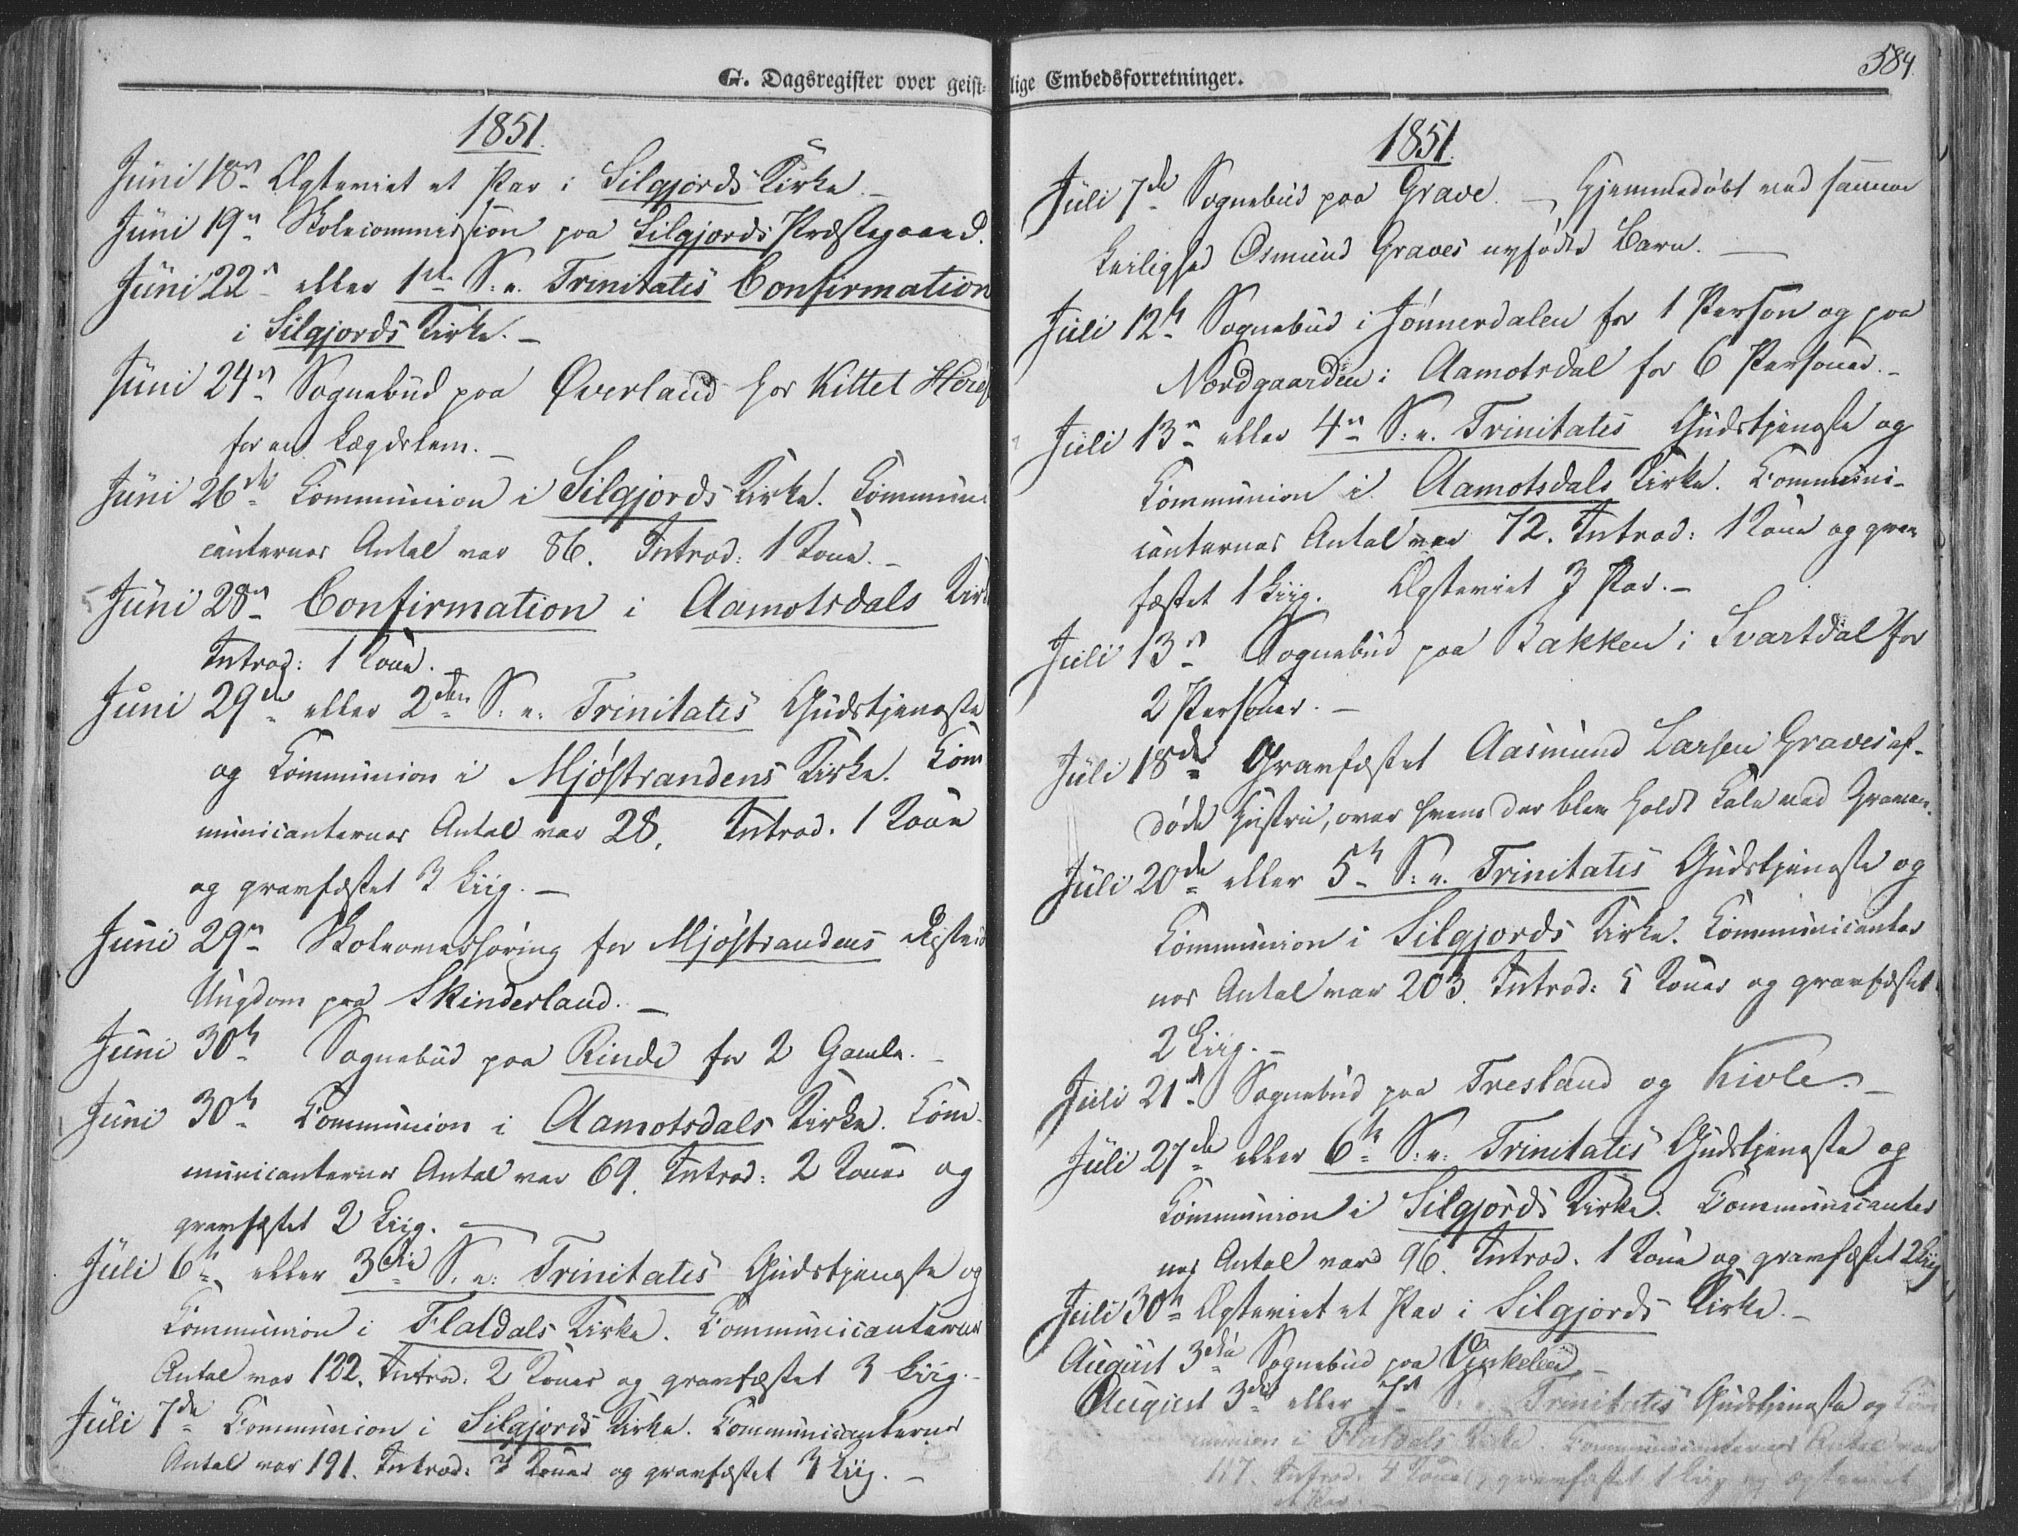 G. Dagsregister over geist-
1851.
Juni 18n Ægteviet et Par i Silgjords Kirke. –
Juni 19n Skolecommission paa Silgjords Præstegaard.
Juni 22n eller 1ste S. e. Trinitatis Confirmation
i Silgjords Kirke. –
Juni 24n Sognebud paa Øverland hos Kittel
for en Lægdslem. –
Juni 26de Communion i Silgjords Kirke. Commun-
canternes Antal var 86. Introd: 1 Kone. –
Juni 28n Confirmation i Aamotsdals Kirke
Introd: 1 Kone.
Juni 29de eller 2den S: e: Trinitatis Gudstjeneste
og Communion i Mjøstrandens Kirke. Com
municanternes Antal var 28. Introd. 1 Kone
og gravfæstet 3 Liig. –
Juni 29n Skoleoverhøring for Mjøstrandens
Ungdom paa Skinderland. –
Juni 30te Sognebud paa Rinde for 2 Gamle. –
Juni 30te Communion i Aamotsdals Kirke. Com-
municanternes Antal var 69. Introd: 2 Koner og
gravfæstet 2 Liig. –
Juli 6te eller 3die S. e: Trinitatis Gudstjeneste og
Communion i Flatdals Kirke. Communicanternes
Antal var 122. Introd. 2 Koner og gravfæstet 3 Liig. –
Juli 7de Communion i Silgjords Kirke. Communicanternes
Antal var 191. Introd: 3 Koner og gravfæstet 3 Liig. –
lige Embedsforretninger.
584.
1851.
Juli 7de Sognebud paa Grave. – Hjemmedøbt ved samme
Leilighed Osmund Graves nyfødte Barn. –
Juli 12te Sognebud i Jønnerdalen for 1 Person og paa
Nordgaarden i Aamotsdal for 6 Personer. –
Juli 13n eller 4de S: e. Trinitatis Gudstjeneste og
Communion i Aamotsdals Kirke. Communi-
canternes Antal var 72. Introd: 1 Kone og grav
fæstet 1 Liig. Ægteviet 3 Par. –
Juli 13n Sognebud paa Bakken i Svartdal for
2 Personer. –
Juli 18de Gravfæstet Aasmund Larsen Graves af-
døde Hustru, over hvem der blev holdt Tale ved Graven.
Juli 20de eller 5te S: e. Trinitatis Gudstjeneste og
Communion i Silgjords Kirke. Communicanter
nes Antal var 203. Introd: 5 Koner og gravfæstet
2 Liig. –
Juli 21n Sognebud paa Tresland og Kivle. –
Juli 27de eller 6te S: e: Trinitatis Gudstjeneste og
Communion i Silgjords Kirke. Communicanter
nes Antal var 96. Introd. 1 Kone og gravfæstet 2 Liig
Juli 30te Ægteviet et Par i Silgjords Kirke. –
August 3die Sognebud paa Vinkelen –
August 3die eller 7de S. e. Trinitatis Gudstjeneste og Com
munion i Flatdals Kirke. Communicanternes Antal var
117. Introd. 4 Koner, gravfæstet 1 Liig og ægteviet
et Par. –